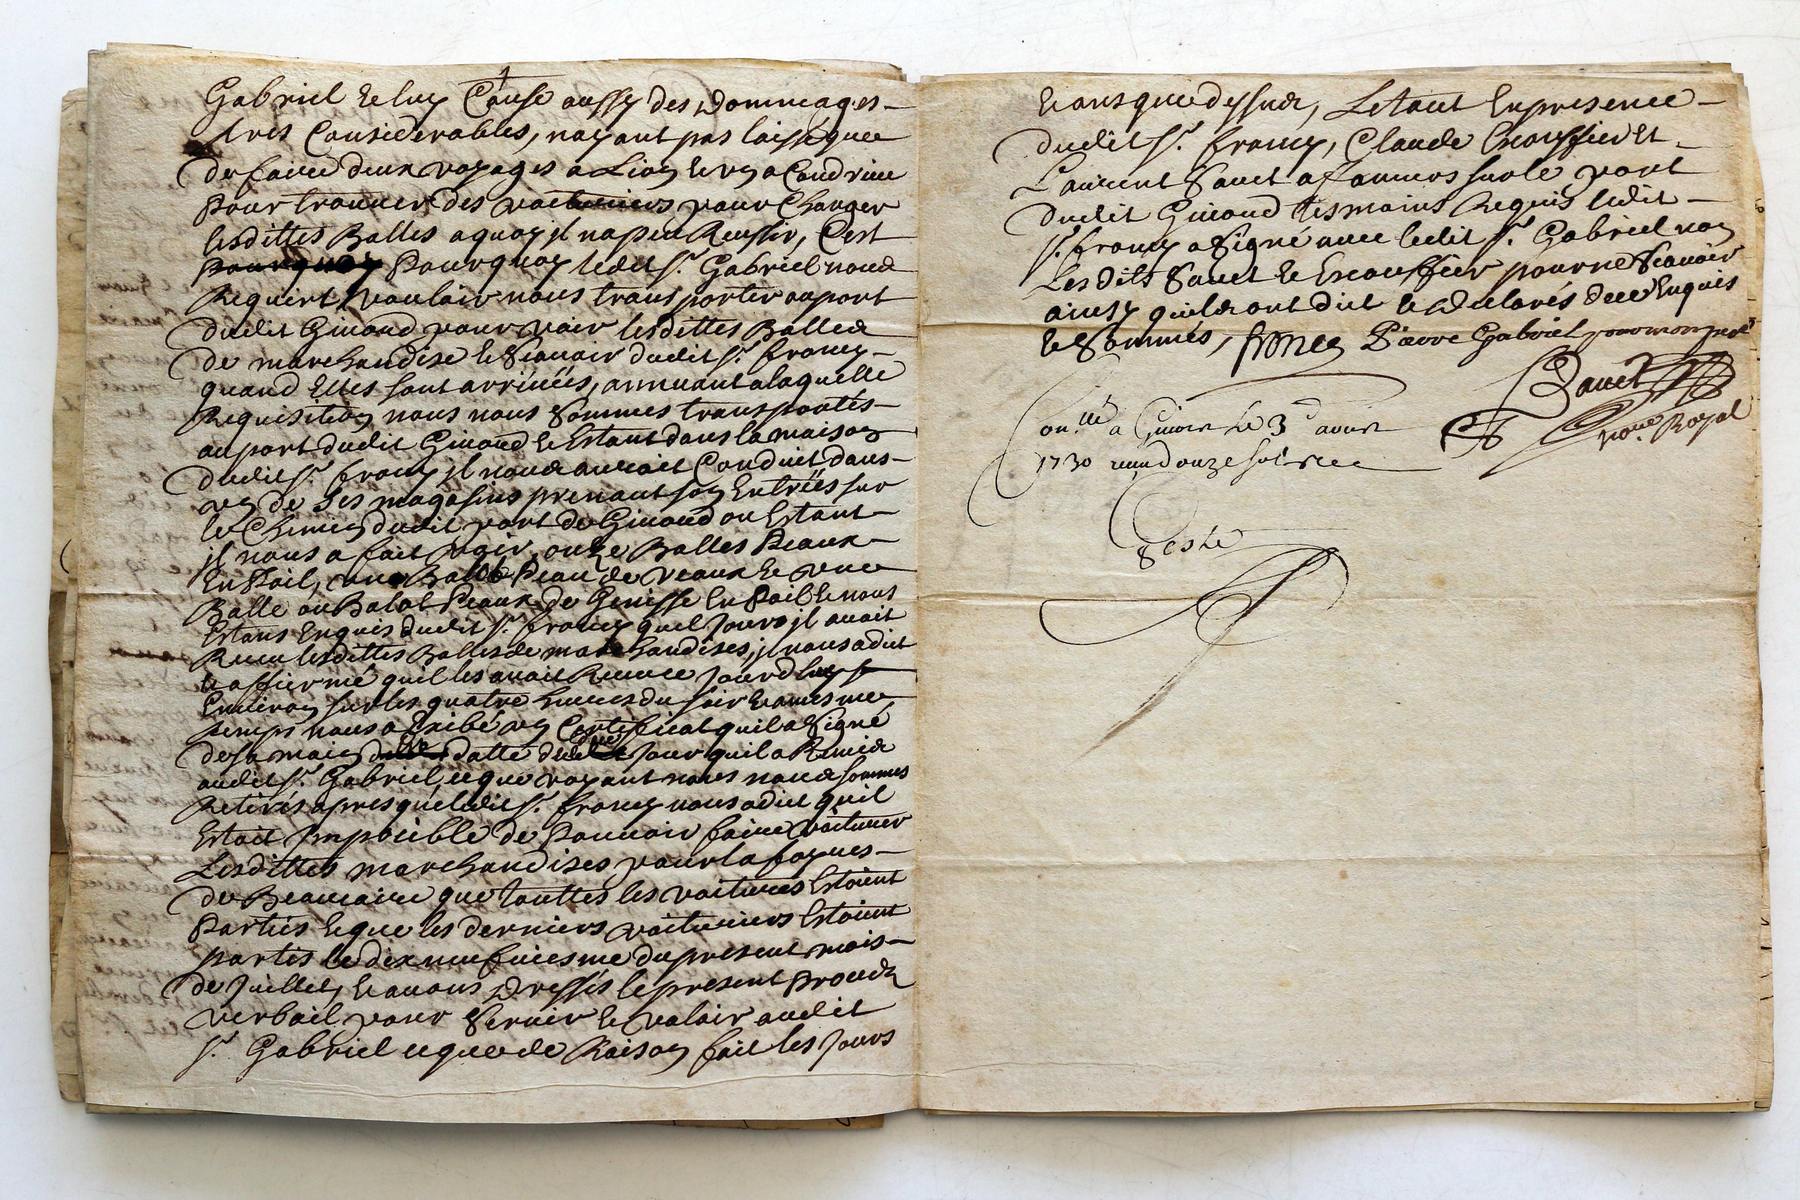 Gabriel Et luy Cause aussy des Dommages
tres Considerables, nayant pas laissé que
de faire deux voyages a Lion Et un a Condrieu
Pour trouver des voituriers pour Charger
lesdittes Balles a quoy jl na peu Reussir, C'est
Pourquoy Ledit Sr. Gabriel nous
Requiert vouloir nous transporter au port
dudit Giuord pour voir lesdittes Balles
de marchandise Et Scauoir dudit Sr. francy
quand Elles sont arriuées, a laquelle
Requisition nous nous Sommes transportés
au port dudit Giuord Et Estant dans la maison
dudit Sr. francy jl nous auroit Conduit dans
un de Ses magasins prenant son Entrées sur
le Chemin dudit port de Giuord ou Estant
jl nous a fait voir onze Balles Peaux
En Poil, une Balle Peau de veaux Et une
Balle ou Balot Peaux de Genisse En Poil Et nous
Estans Enquis dudit Sr. francy quel Jours jl auoit
Receu lesdittes Balles de marchandises, jl nous a dit
Et affiermé quil les auoit Receues Jourdhuy
Enuiron sur les quatre heures du soir Et a mesme
temps nous a Exibé un Certificat quil a Signé
de sa main datté dudit Jour quil a Remis
audit Sr. Gabriel ce que voyant nous nous sommes
Retirés apres que ledit Sr. francy nous a dit quil
Estoit Jmposible de Pouuoir faire voiturer
Lesdittes marchandises pour la foyre
de Beaucaire que touttes les voitures Estoient
Parties Et que les derniers voituriers Estoient
partis le dix neufuiesme du present mois
de Juillet, Et auons Dressés le present Procés
verbail pour Seruir Et valoir audit
Sr. Gabriel ce que de Raison fait les Jours
Et ans que dessus, Et tout En presence
dudit Sr. francy, Claude Escoffier Et
Laurent Sauet a sur le port
dudit Giuord tesmoins Requis ledit
Sr. francy a Signé auec ledit Sr. Gabriel non
Les dits Sauet Et Escoffier pour ne Scauoir
ainsy quils ont dit Et declarés de ce Enquis
Et Sommés, francy Pierre Gabriel pour mon pere
Con.llé a Giuors le 3e aoust
1730 receu douze sols
Teste
no.re Royal